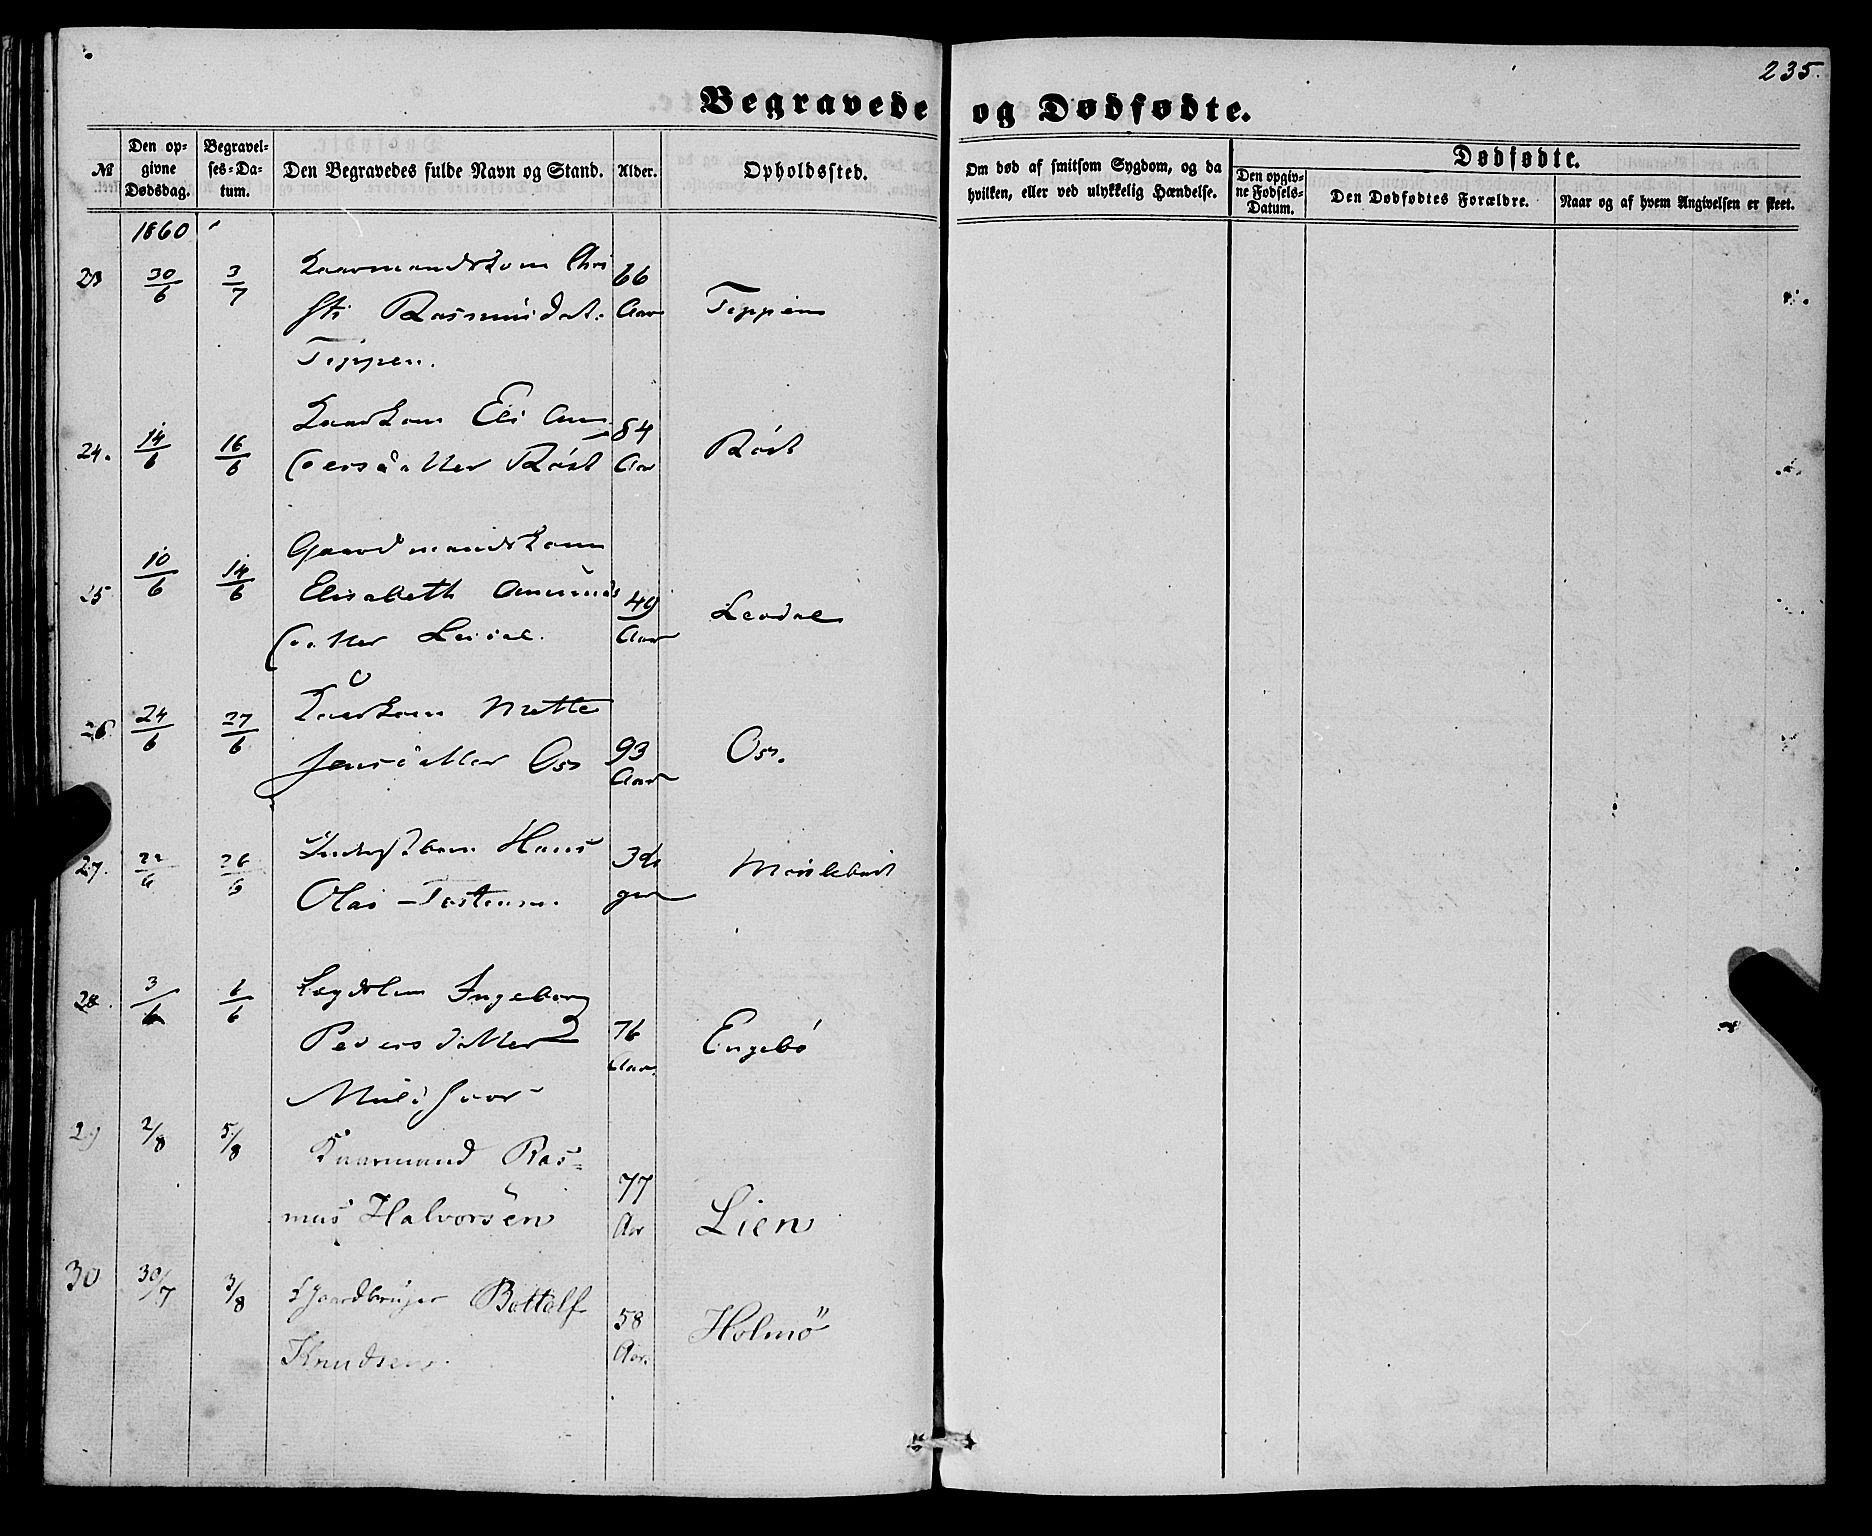 235.
Begravede og Dødfødte.
№
Den opgivne Dødsdag.
Begravelses-Datum.
Den Begravedes fulde Navn og Stand.
Alder.
Opholdssted.
Om død af smitsom Sygdom, og da hvilken, eller ved ulykkelig Hændelse.
Dødfødte.
Den opgivne Fødsels-Datum.
Den Dødfødtes Forældre.
Naar og af hvem Angivelsen er skeet.
1860
23 30/6 3/7 Kaarmandskone Chri 66
sti Rasmusdat. Aar Teppen
Teppen.
24. 14/6 16/6 Kaarkone Eli An 84
dersdatter Röst Aar Röst
25 10/6 14/6 Gaardmandskone
Elisabeth Amunds 49 Levdal
datter Aar
26 24/6 27/6 Kaarkone Mette
Jensdatter Os 93 Aar Os.
27. 22/6 26/6 Hans 3 da
Olai Tostensen ger
28 3/6 6/6 Lægdslem Ingeborg
Pedersdatter 76 Aar. Engebö
29 2/8 5/8 Kaarmand Ras-
mus Halvorsen 77 Aar Lien
30 30/7 3/8 Gaardbruger Bottolf
Knudsen. 58 Aar. Holmö